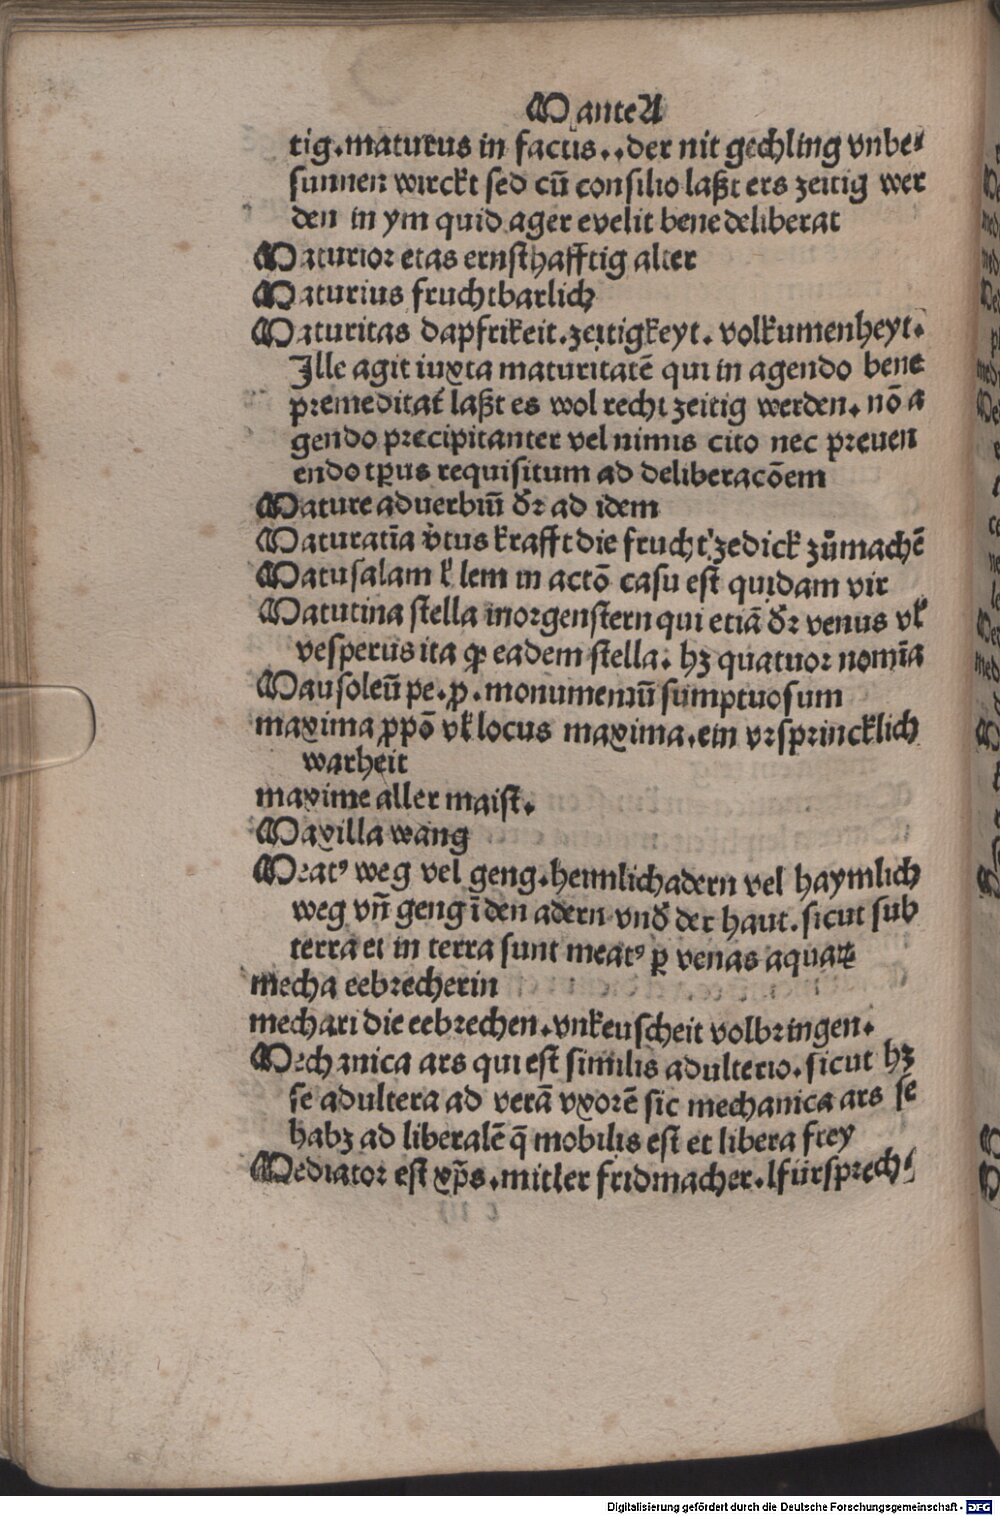 Mante A
tig.maturus in factis..der nit gechling vnbe⸗
sunnen wirckt sed cū consilio laßt ers zeitig wer
den in ym quid ager evelit bene deliberat
Maturior etas ernsthafftig alter
Maturius fruchtbarlich
Maturitas dapfrikeit.zeitigkeyt. volkumenheyt.
Jlle agit iuxta maturitatē qui in agendo bene
premeditat᷑ laßt es wol recht zeitig werden. nō a
gendo precipitanter vel nimis cito nec preuen
endo tp̄us requisitum ad deliberacōem
Mature aduerbiū dr̄ ad idem
Maturatīa v̓tus krafft die frucht zedick zůmachē
Matusalam kͥ lem in actō casu est quidam vir
Matutina stella morgenstern qui etiā dr̄ venus vl̓
vesperus ita ꝙ eadem stella. hꝫ quatuor nomīa
Mausoleū pe. ꝓ. monumentū sumptuosum
maxima ꝓpō vl̓ locus maxima.ein vrsprincklich
warheit
maxime aller maist.
Maxilla wang
Meatꝰ weg vel geng.heimlich adern vel haymlich
weg vn̄ geng ī den adern vnd̓ der haut. sicut sub
terra et in terra sunt meatꝰ ꝑ venas aquaꝝ
mecha eebrecherin
mechari die eebrechen.vnkeuscheit volbringen.
Mechanica ars qui est similis adulterio. sicut hꝫ
se adultera ad verā vxorē sic mechanica ars se
habꝫ ad liberalē q̄ mobilis est et libera frey
Mediator est xp̄s.mitler fridmacher.lfürsprech⸗
Digitalisierung gefördert durch die Deutsche Forschungsgemeinschaft - DFG